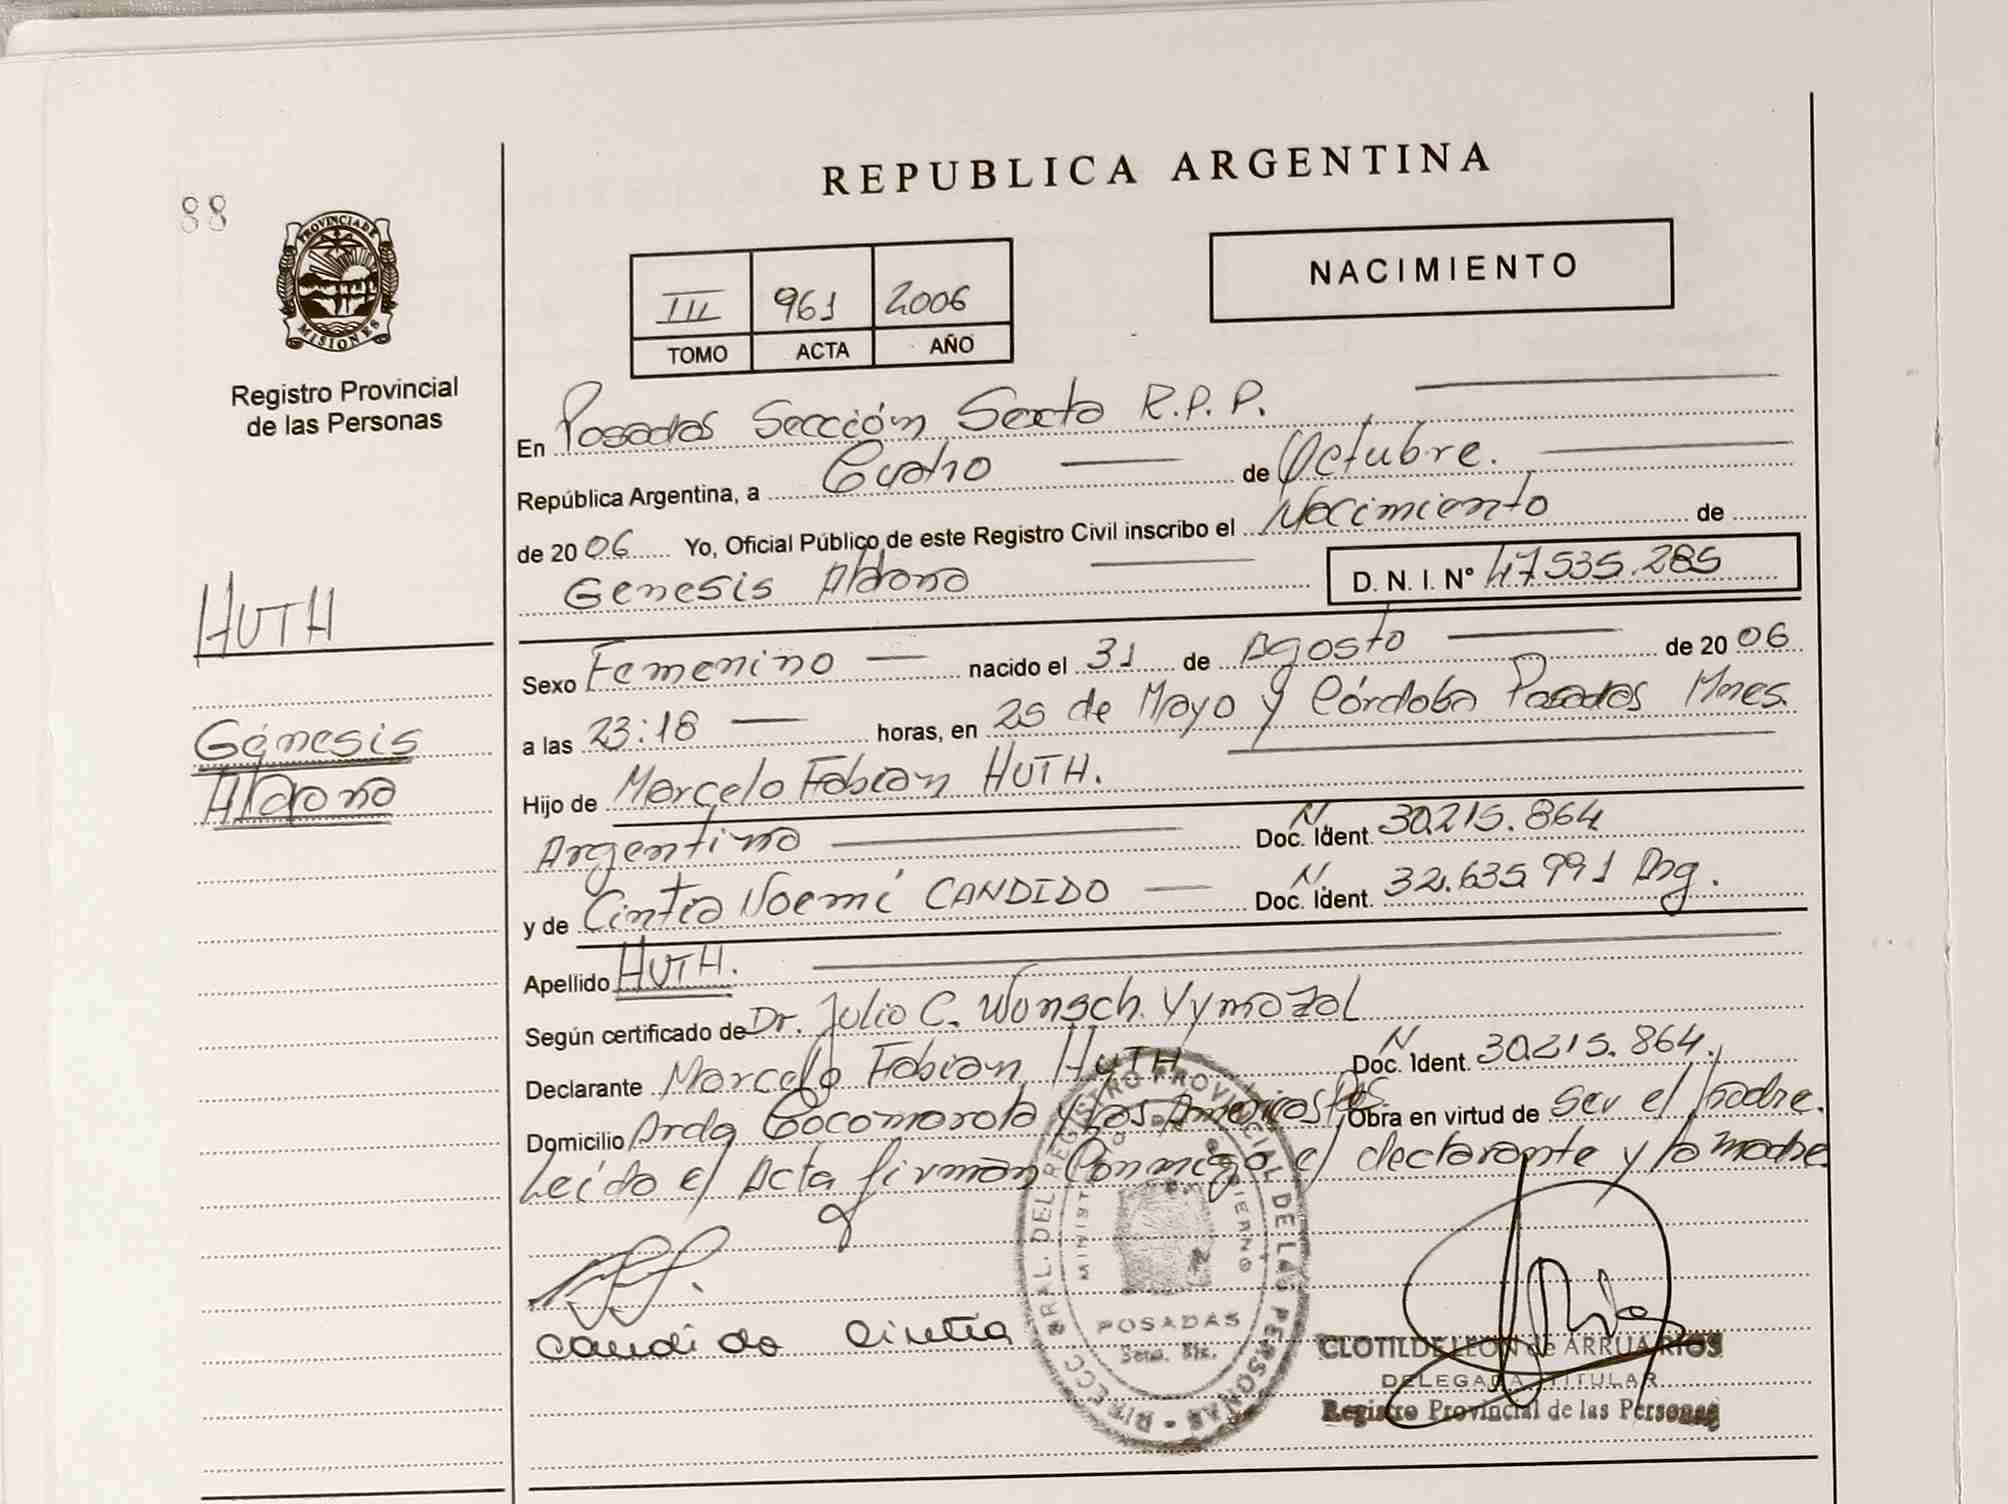 88
PROVINCIA DE
MISIONES
Registro Provincial
de las Personas
HUTH
Génesis
Aldana
REPUBLICA ARGENTINA
III 961 2006
TOMO ACTA AÑO
NACIMIENTO
En Posadas Sección Sexta R.P.P.
República Argentina, a Cuatro de Octubre.
de 2006 Yo, Oficial Público de este Registro Civil inscribo el Nacimiento de
Génesis Aldana D. N. I. N° 47.535.285
Sexo Femenino nacido el 31 de Agosto de 2006
a las 23:18 horas, en 25 de Mayo y Córdoba Posadas Mnes.
Hijo de Marcelo Fabian HUTH.
Argentino Doc. Ident. N 30.215.864
y de Cintia Noemí CANDIDO Doc. Ident. N 32.635.991 Arg.
Apellido HUTH.
Según certificado de Dr. Julio C. Wonsch Vymazal
Declarante Marcelo Fabian HUTH Doc. Ident. N 30.215.864.
Domicilio Avda Cocomarola y Las Americas Pdas. Obra en virtud de ser el padre.
Leído el Acta firman Conmigo el declarante y la madre
candido Cintia
POSADAS
CLOTILDE LEON de ARRUA RIOS
DELEGADA TITULAR
Registro Provincial de las Personas